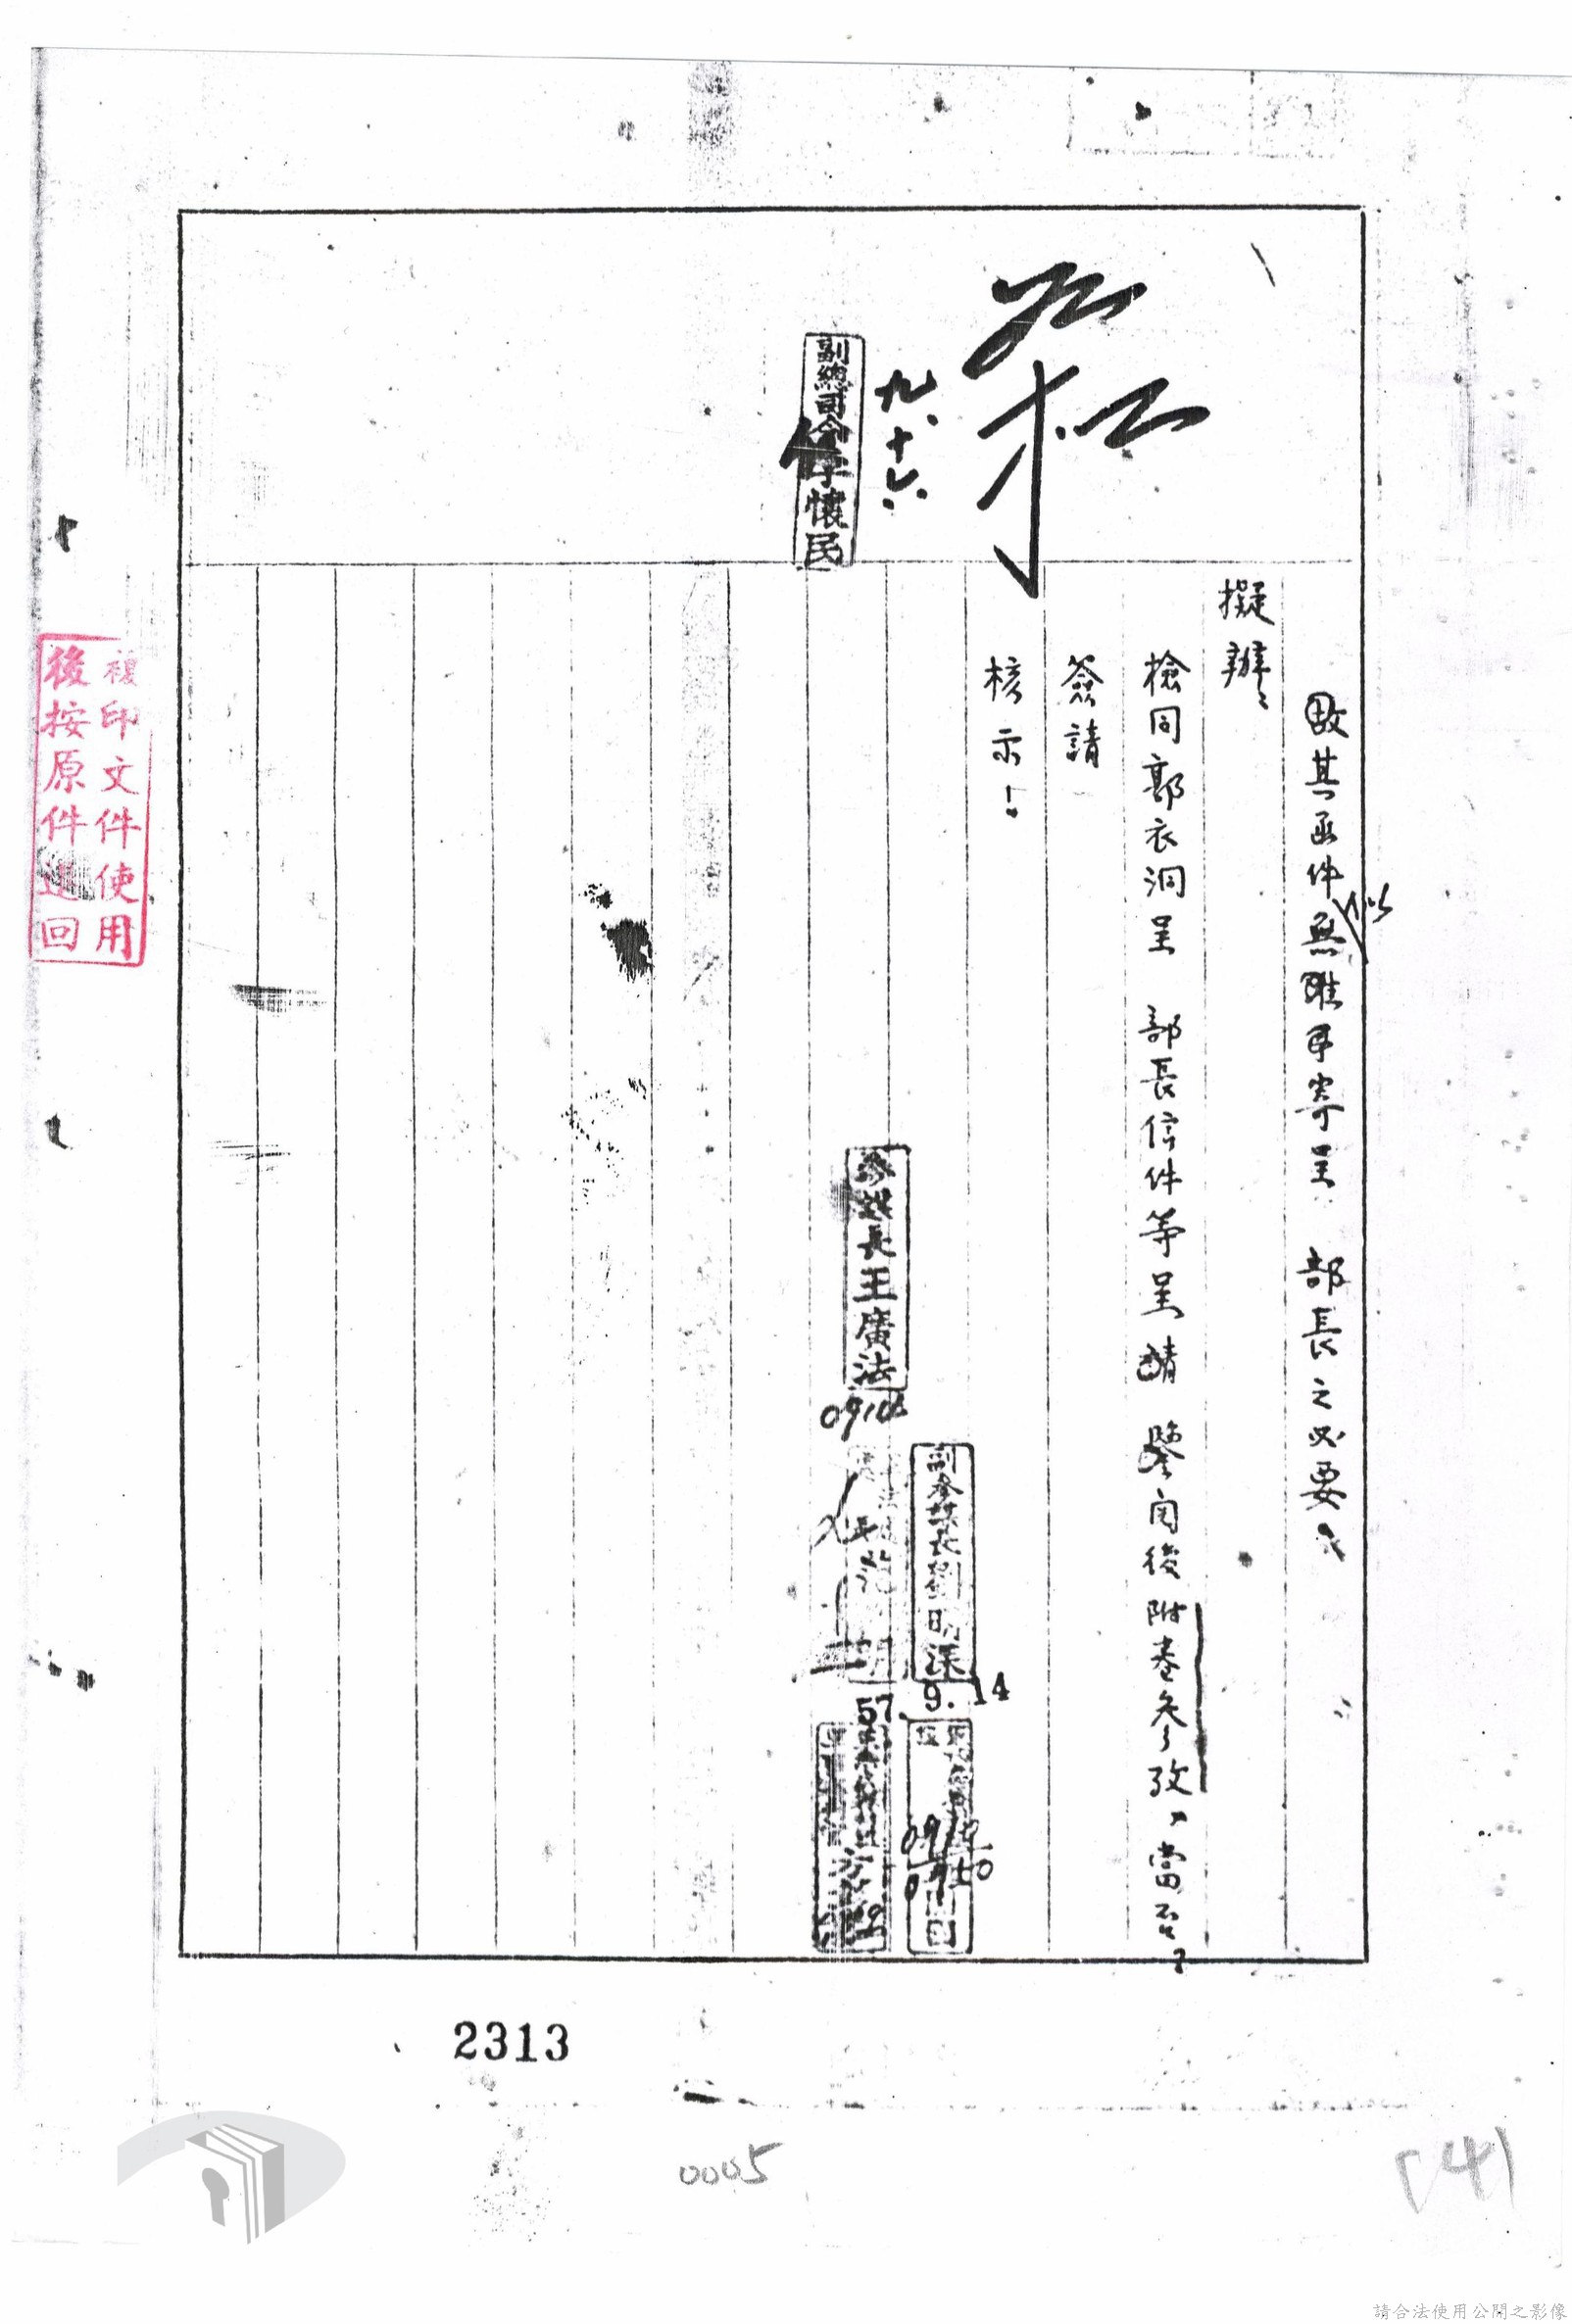 故其函件似無准再寄呈 部長之必要、
擬辦:
檢同郭衣洞呈 部長信件等呈請 鑒閱後附卷參攷,當否,
簽請
核示!
如擬
九、十六、
副總司令李懷民
參謀長王廣法
0916
副參謀長劉明深
57. 9. 14
複印文件使用
後按原件退回
2313
0005
(4)
請合法使用公開之影像